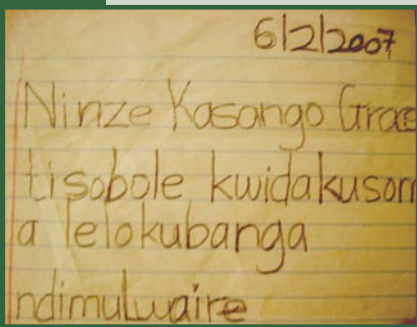 6/2/2007
Ninze Kasango Grace
tisobole kwidakusom
a lelokubanga
ndimulwaire